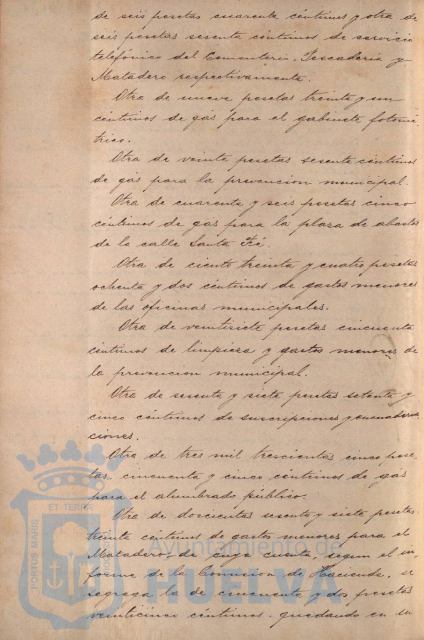 de seis pesetas cuarenta céntimos y otra de
seis pesetas sesenta céntimos de servicio
telefónico del Cementerio, Pescadería y
Matadero respectivamente.
Otra de nueve pesetas treinta y un
céntimos de gas para el gabinete fotomé
trico.
Otra de veinte pesetas sesenta céntimos
de gas para la prevencion municipal.
Otra de cuarenta y seis pesetas cinco
céntimos de gas para la plaza de abastos
de la calle Santa Fé.
Otra de ciento treinta y cuatro pesetas
ochenta y dos céntimos de gastos menores
de las oficinas municipales.
Otra de veintisiete pesetas cincuenta
céntimos de limpieza y gastos menores de
la prevencion municipal.
Otra de sesenta y siete pesetas setenta y
cinco céntimos de suscripciones y encuaderna
ciones.
Otra de tres mil trescientas cinco pese
tas, cincuenta y cinco céntimos de gas
para el alumbrado público.
Otra de doscientas sesenta y siete pesetas
treinta céntimos de gastos menores para el
Matadero, de cuya cuenta, segun el in
forme de la Comision de Hacienda, se
segrega la de cincuenta y dos pesetas
veinticinco céntimos, quedando en su
PORTUS MARIS
ET TERRAE
Ayuntamiento de
HUELVA